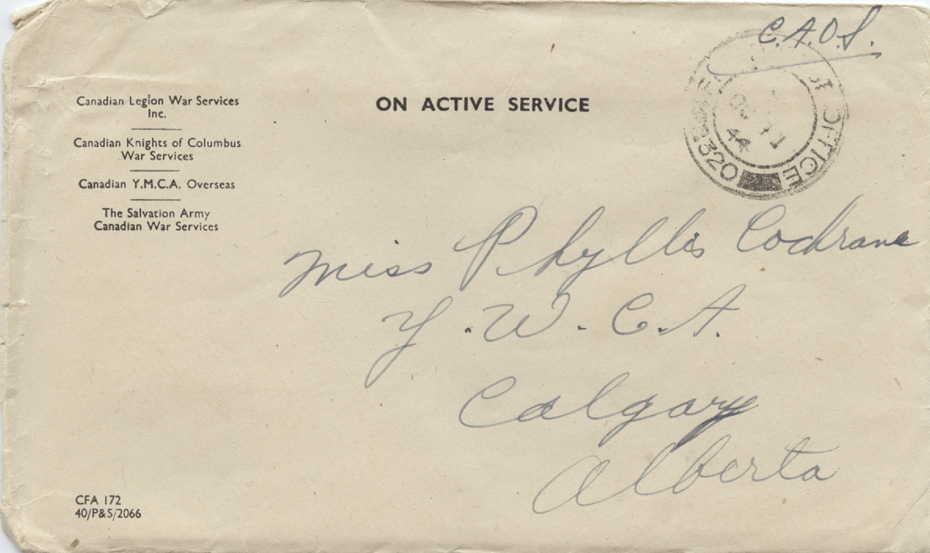 C.A.O.S.
ON ACTIVE SERVICE
Canadian Legion War Services
Inc.
Canadian Knights of Columbus
War Services
Canadian Y.M.C.A. Overseas
The Salvation Army
Canadian War Services
OFFICE
44
320
Miss Phyllis Cochrane
Y.W.C.A.
Calgary
Alberta
CFA 172
40/P&S/2066